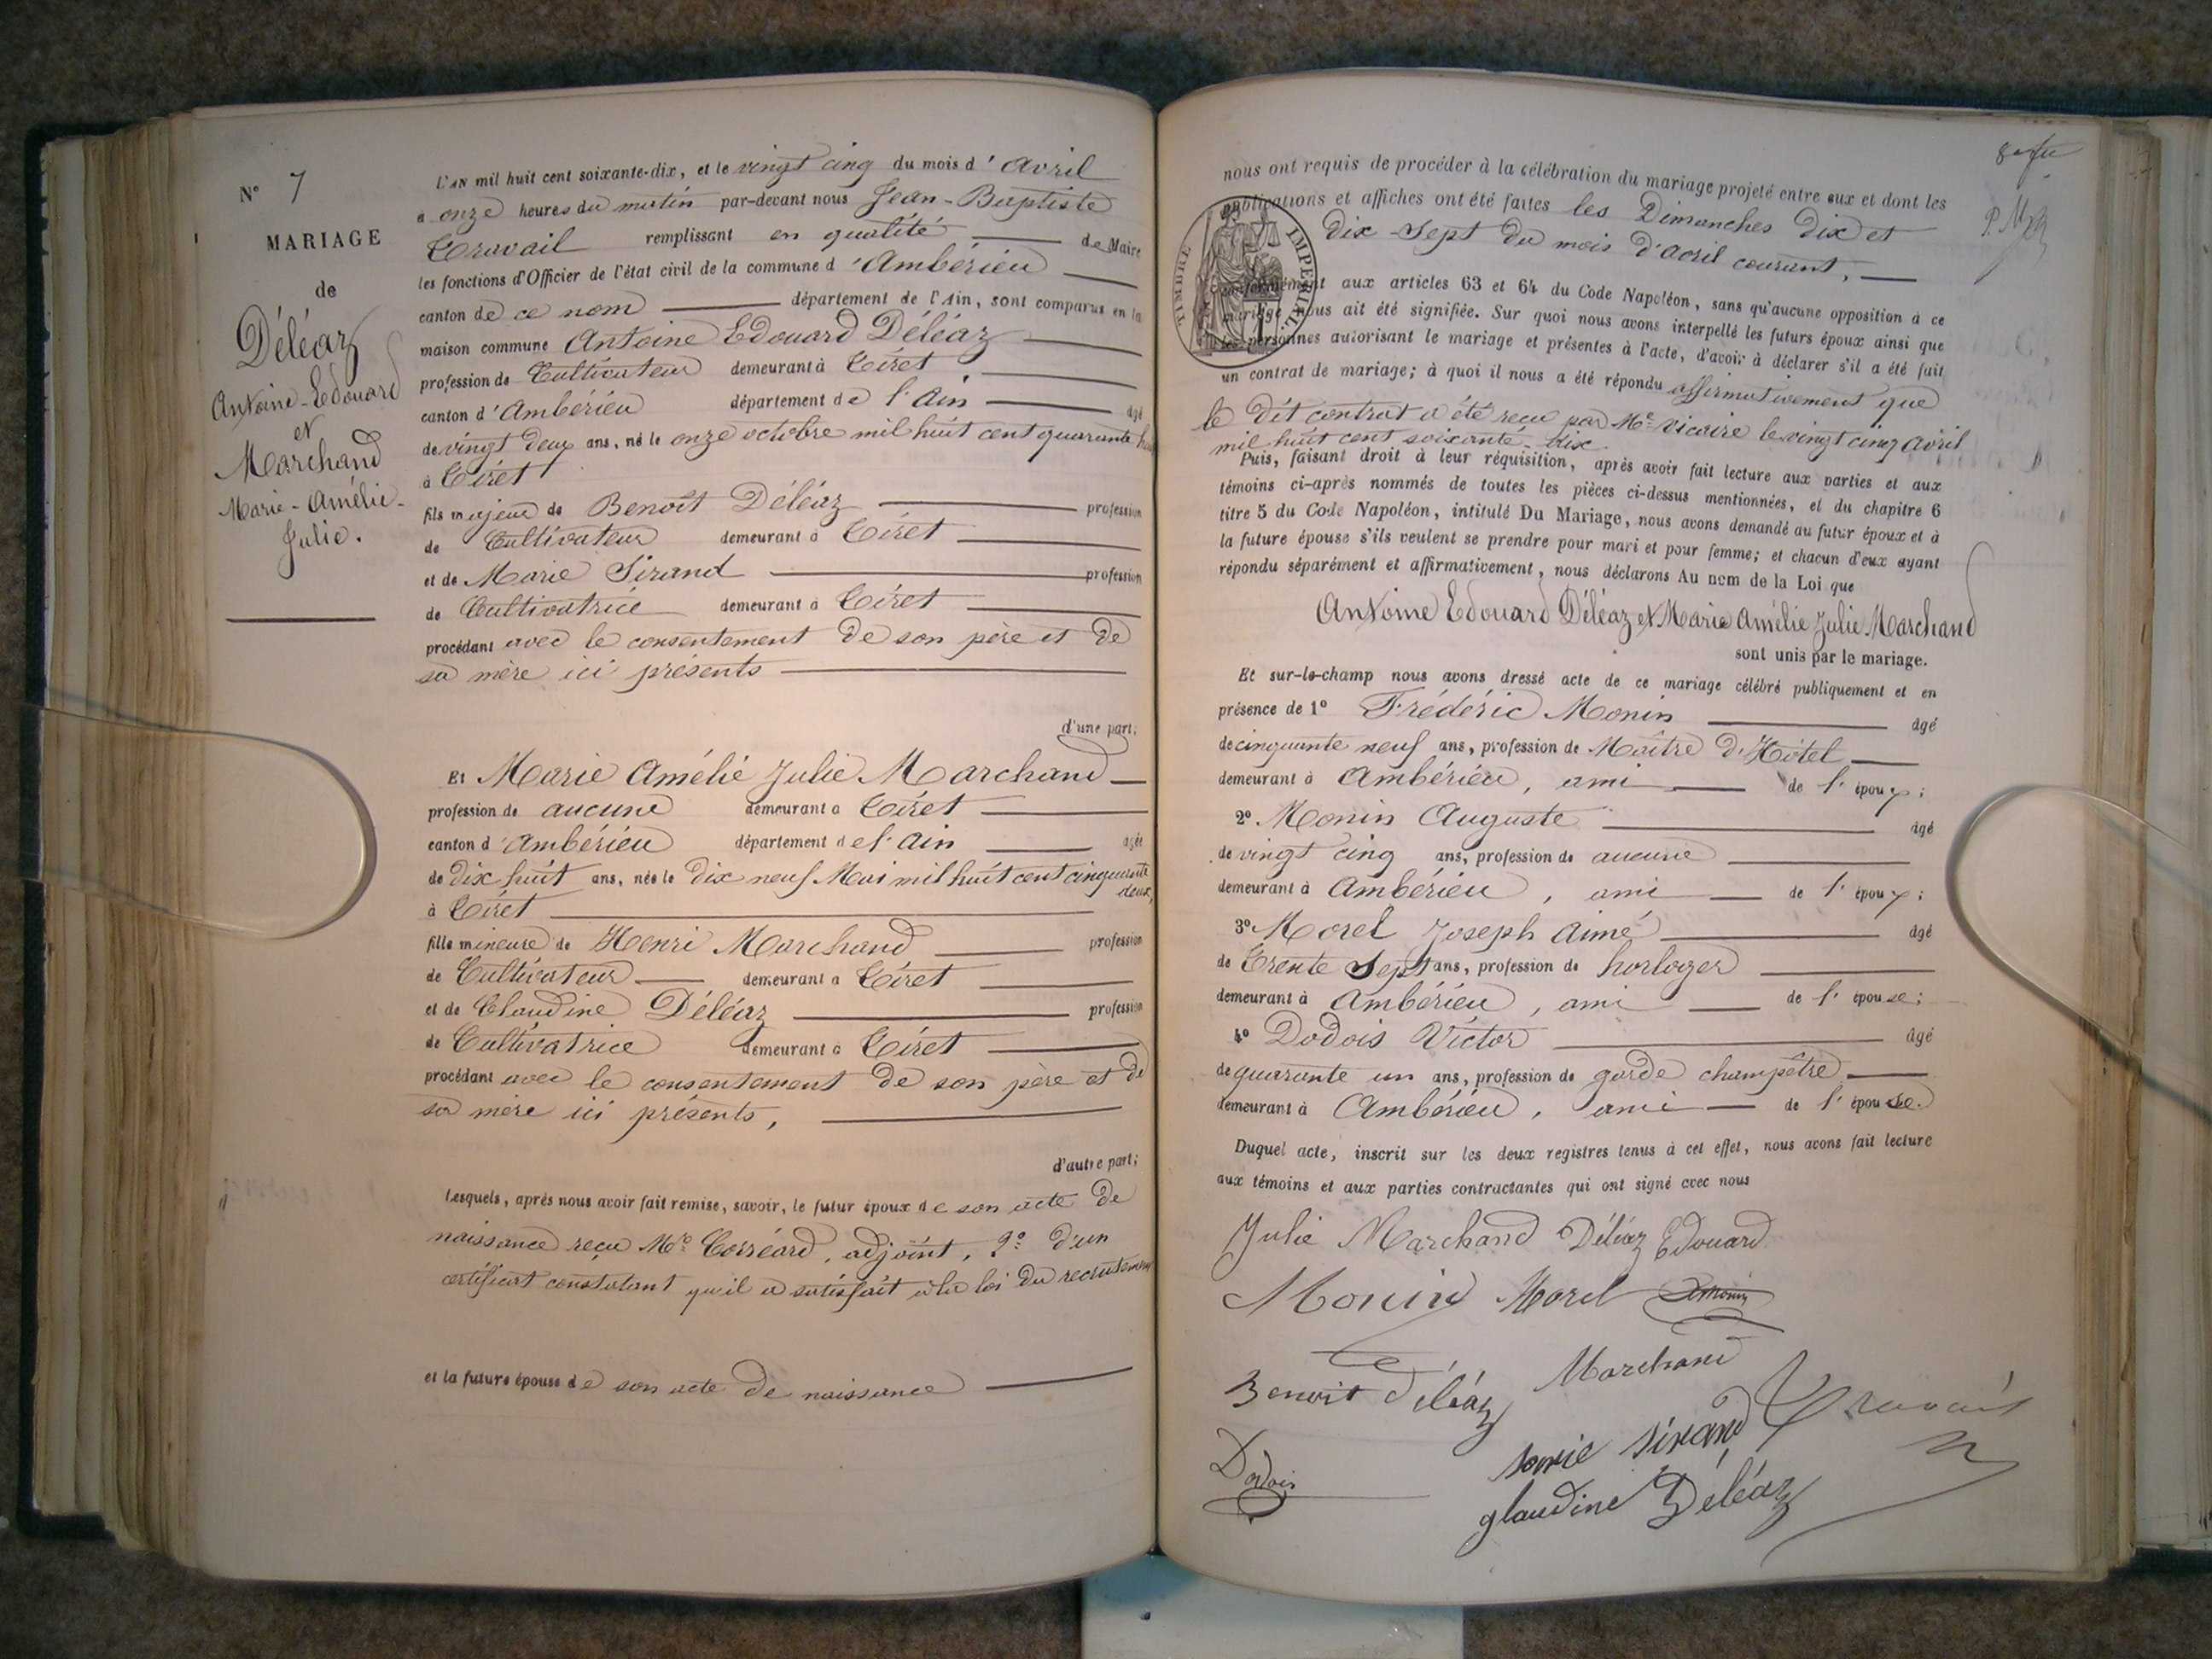 N° 7
MARIAGE
de
Déléaz
Antoine-Edouard
et
Marchand
Marie-Amélie-
Julie.
L'AN mil huit cent soixante-dix, et le vingt cinq du mois d'Avril
à onze heures du matin par-devant nous Jean-Baptiste
Travail remplissant en qualité de Maire
les fonctions d'Officier de l'état civil de la commune d'Ambérieu
canton de ce nom département de l'Ain, sont comparus en la
maison commune Antoine Edouard Déléaz
profession de Cultivateur demeurant à Tiret
canton d'Ambérieu département de l'Ain âgé
de vingt deux ans, né le onze octobre mil huit cent quarante
à Tiret
fils majeur de Benoît Déléaz profession
de Cultivateur demeurant à Tiret
et de Marie Sirand profession
de Cultivatrice demeurant à Tiret
procédant avec le consentement de son père et de
sa mère ici présents
d'une part;
Et Marie Amélie Julie Marchand
profession de aucune demeurant à Tiret
canton d'Ambérieu département de l'Ain agée
de dix huit ans, née le dix neuf Mai mil huit cent cinquante
deux,
à Tiret
fille mineure de Henri Marchand profession
de Cultivateur demeurant à Tiret
et de Claudine Déléaz profession
de Cultivatrice demeurant à Tiret
procédant avec le consentement de son père et de
sa mère ici présents,
d'autre part;
Lesquels, après nous avoir fait remise, savoir, le futur époux de son acte de
naissance reçu Mr Corréard, adjoint, 2° d'un
certificat constatant qu'il a satisfait à la loi du recrutement
et la future épouse de son acte de naissance
nous ont requis de procéder à la célébration du mariage projeté entre eux et dont les
publications et affiches ont été faites les Dimanches dix et
dix-sept du mois d'avril courant,
TIMBRE IMPERIAL
conformément aux articles 63 et 64 du Code Napoléon, sans qu'aucune opposition à ce
mariage nous ait été signifiée. Sur quoi nous avons interpellé les futurs époux ainsi que
les personnes autorisant le mariage et présentes à l'acte, d'avoir à déclarer s'il a été fait
un contrat de mariage; à quoi il nous a été répondu affirmativement que
le dit contrat a été reçu par Me Vicaire le vingt cinq avril
mil huit cent soixante-dix
Puis, faisant droit à leur réquisition, après avoir fait lecture aux parties et aux
témoins ci-après nommés de toutes les pièces ci-dessus mentionnées, et du chapitre 6
titre 5 du Code Napoléon, intitulé Du Mariage, nous avons demandé au futur époux et à
la future épouse s'ils veulent se prendre pour mari et pour femme; et chacun d'eux ayant
répondu séparément et affirmativement, nous déclarons Au nom de la Loi que
Antoine Edouard Déléaz et Marie Amélie Julie Marchand
sont unis par le mariage.
Et sur-le-champ nous avons dressé acte de ce mariage célébré publiquement et en
présence de 1° Frédéric Monin âgé
de cinquante neuf ans, profession de Maître d'Hôtel
demeurant à Ambérieu, ami de l'époux;
2° Monin Auguste âgé
de vingt cinq ans, profession de aucune
demeurant à Ambérieu, ami de l'époux;
3° Morel Joseph Aimé âgé
de Trente Sept ans, profession de horloger
demeurant à Ambérieu, ami de l'épouse;
4° Dodois Victor âgé
de quarante un ans, profession de garde champêtre
demeurant à Ambérieu, ami de l'épouse.
Duquel acte, inscrit sur les deux registres tenus à cet effet, nous avons fait lecture
aux témoins et aux parties contractantes qui ont signé avec nous
Julie Marchand Déléaz Edouard
Monin Morel
Marchand
Benoit Déléaz
Travail
Marie Sirand
Dodois
glaudine Déléaz